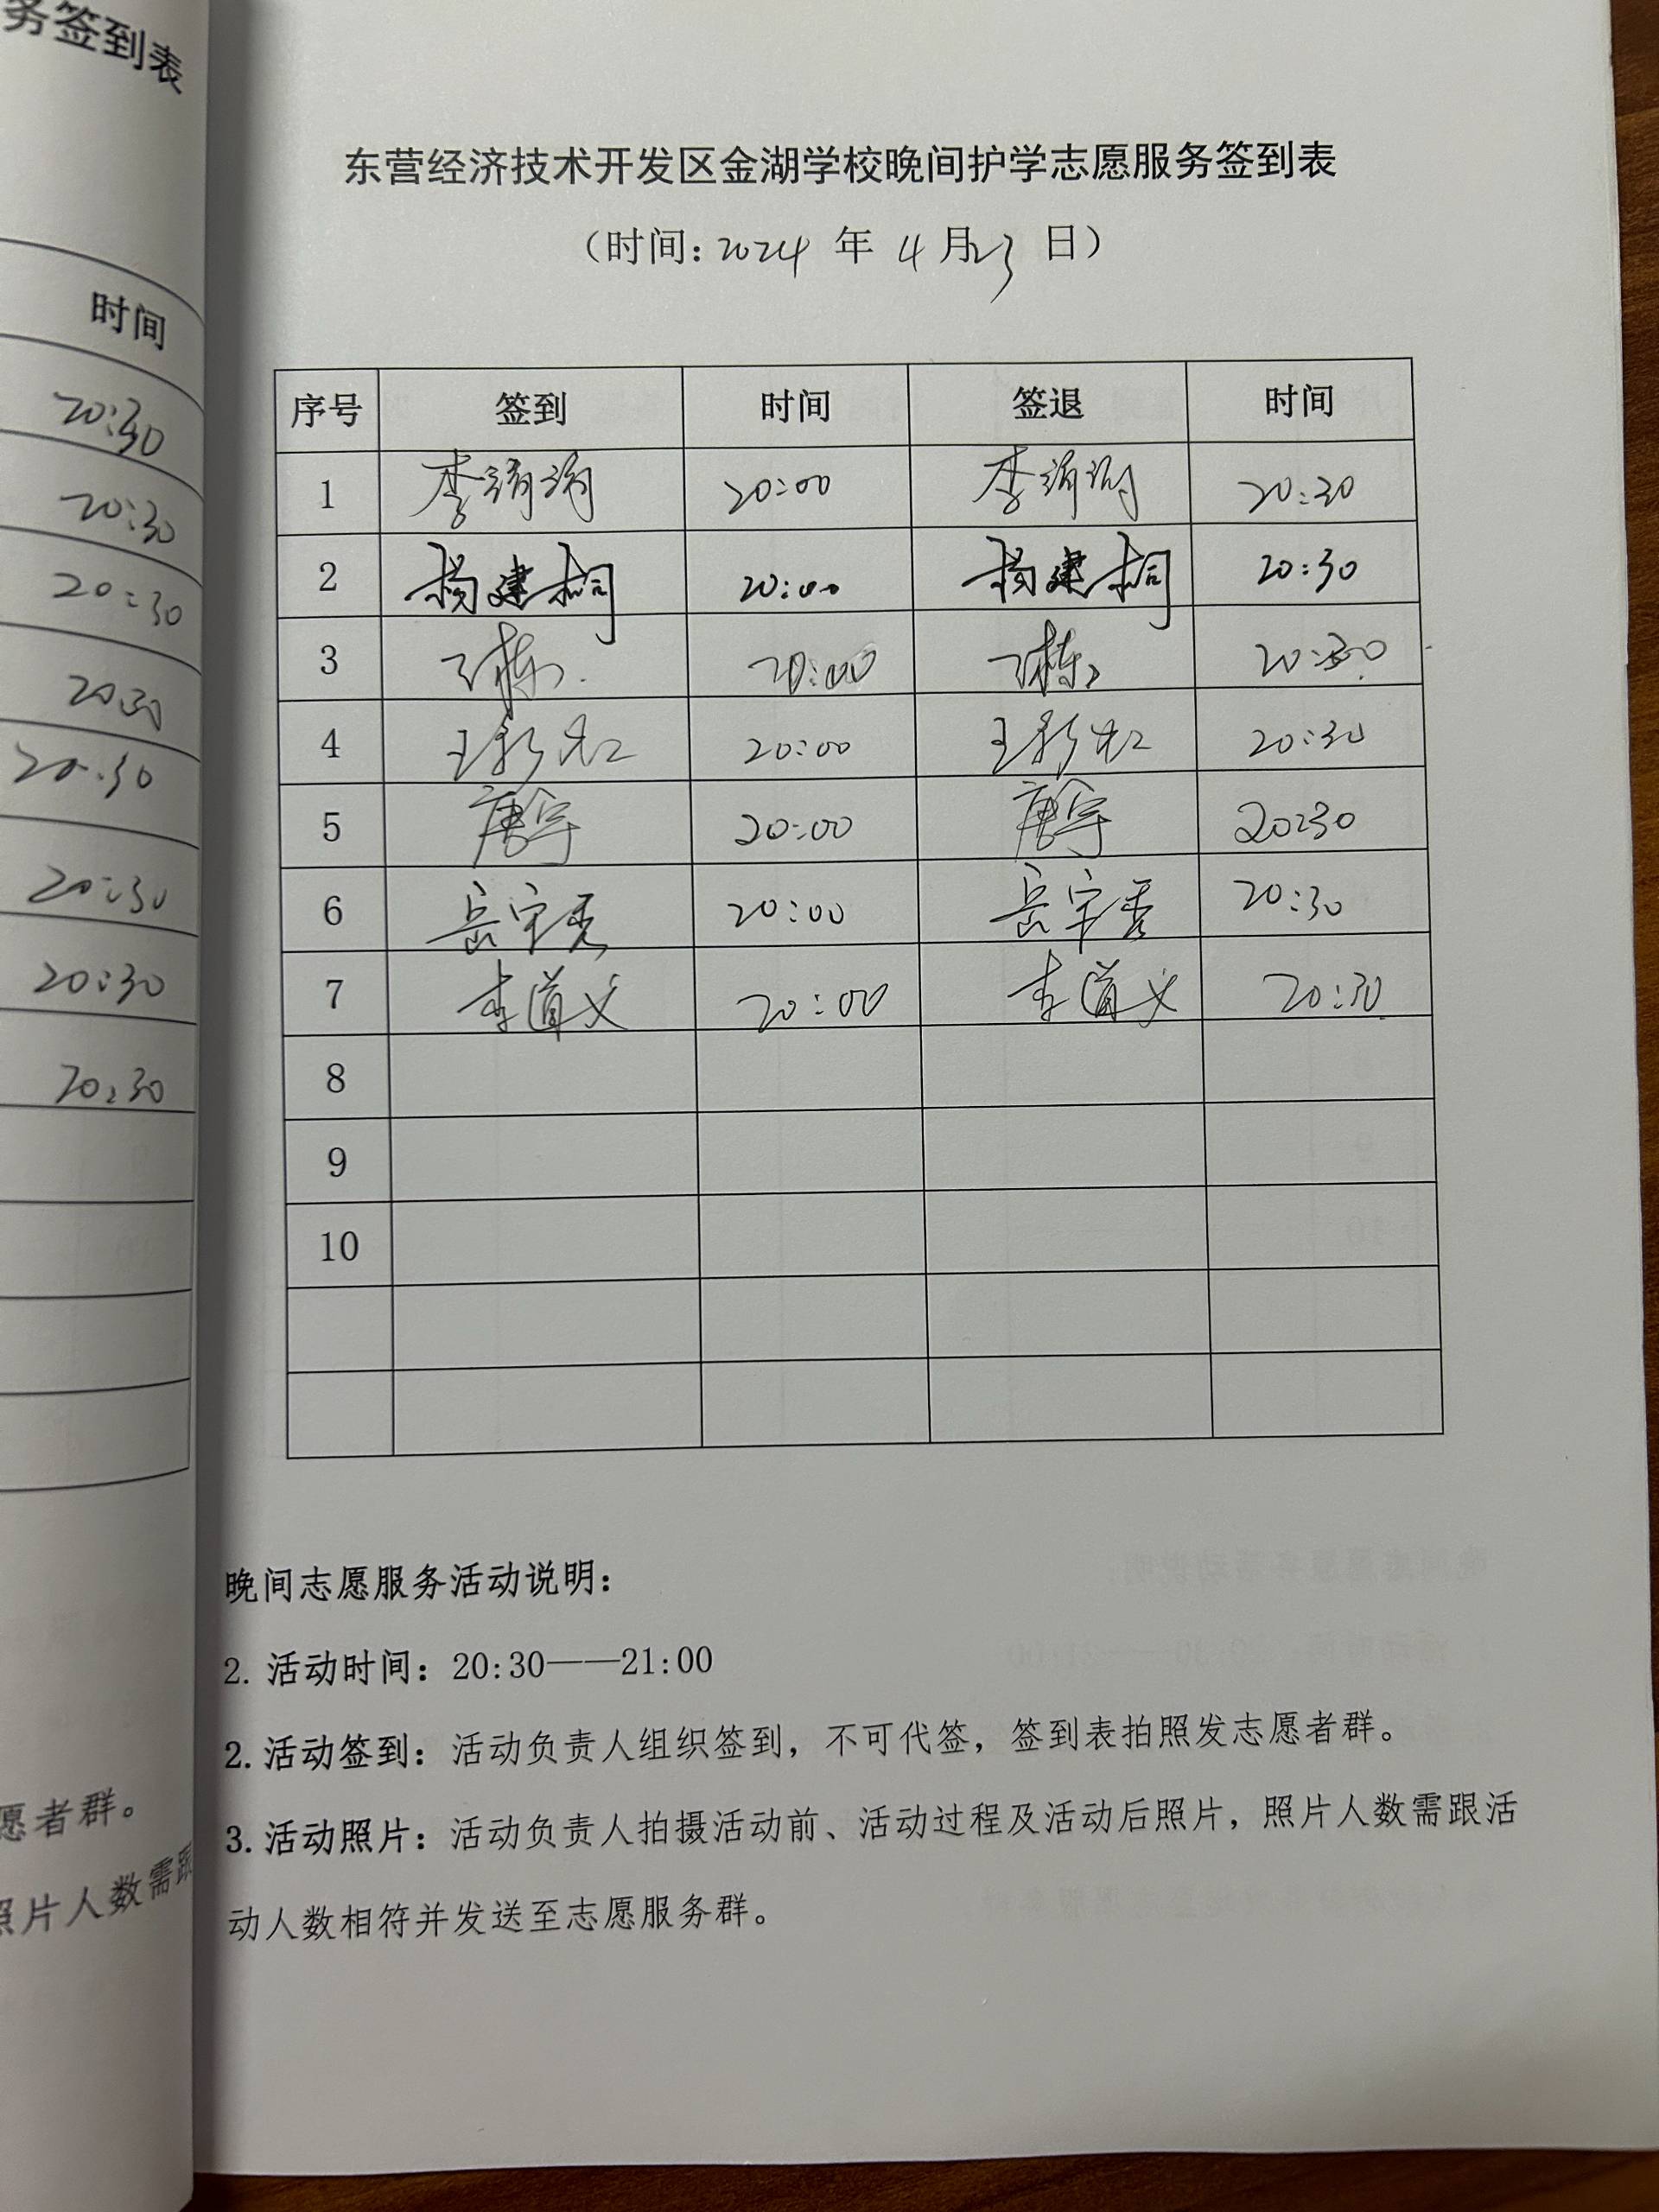 务签到表
时间
20:30
20:30
20:30
20:30
20:30
20:30
20:30
20:30
愿者群。
照片人数需跟
东营经济技术开发区金湖学校晚间护学志愿服务签到表
（时间：2024 年 4 月 23 日）
序号 签到 时间 签退 时间
1 李娟娟 20:00 李娟娟 20:30
2 杨建桐 20:00 杨建桐 20:30
3 20:00 20:30
4 王彩虹 20:00 王彩虹 20:30
5 唐宇 20:00 唐宇 20:30
6 岳宗秀 20:00 岳宗秀 20:30
7 李道义 20:00 李道义 20:30
8
9
10
晚间志愿服务活动说明：
2. 活动时间：20:30——21:00
2. 活动签到：活动负责人组织签到，不可代签，签到表拍照发志愿者群。
3. 活动照片：活动负责人拍摄活动前、活动过程及活动后照片，照片人数需跟活
动人数相符并发送至志愿服务群。